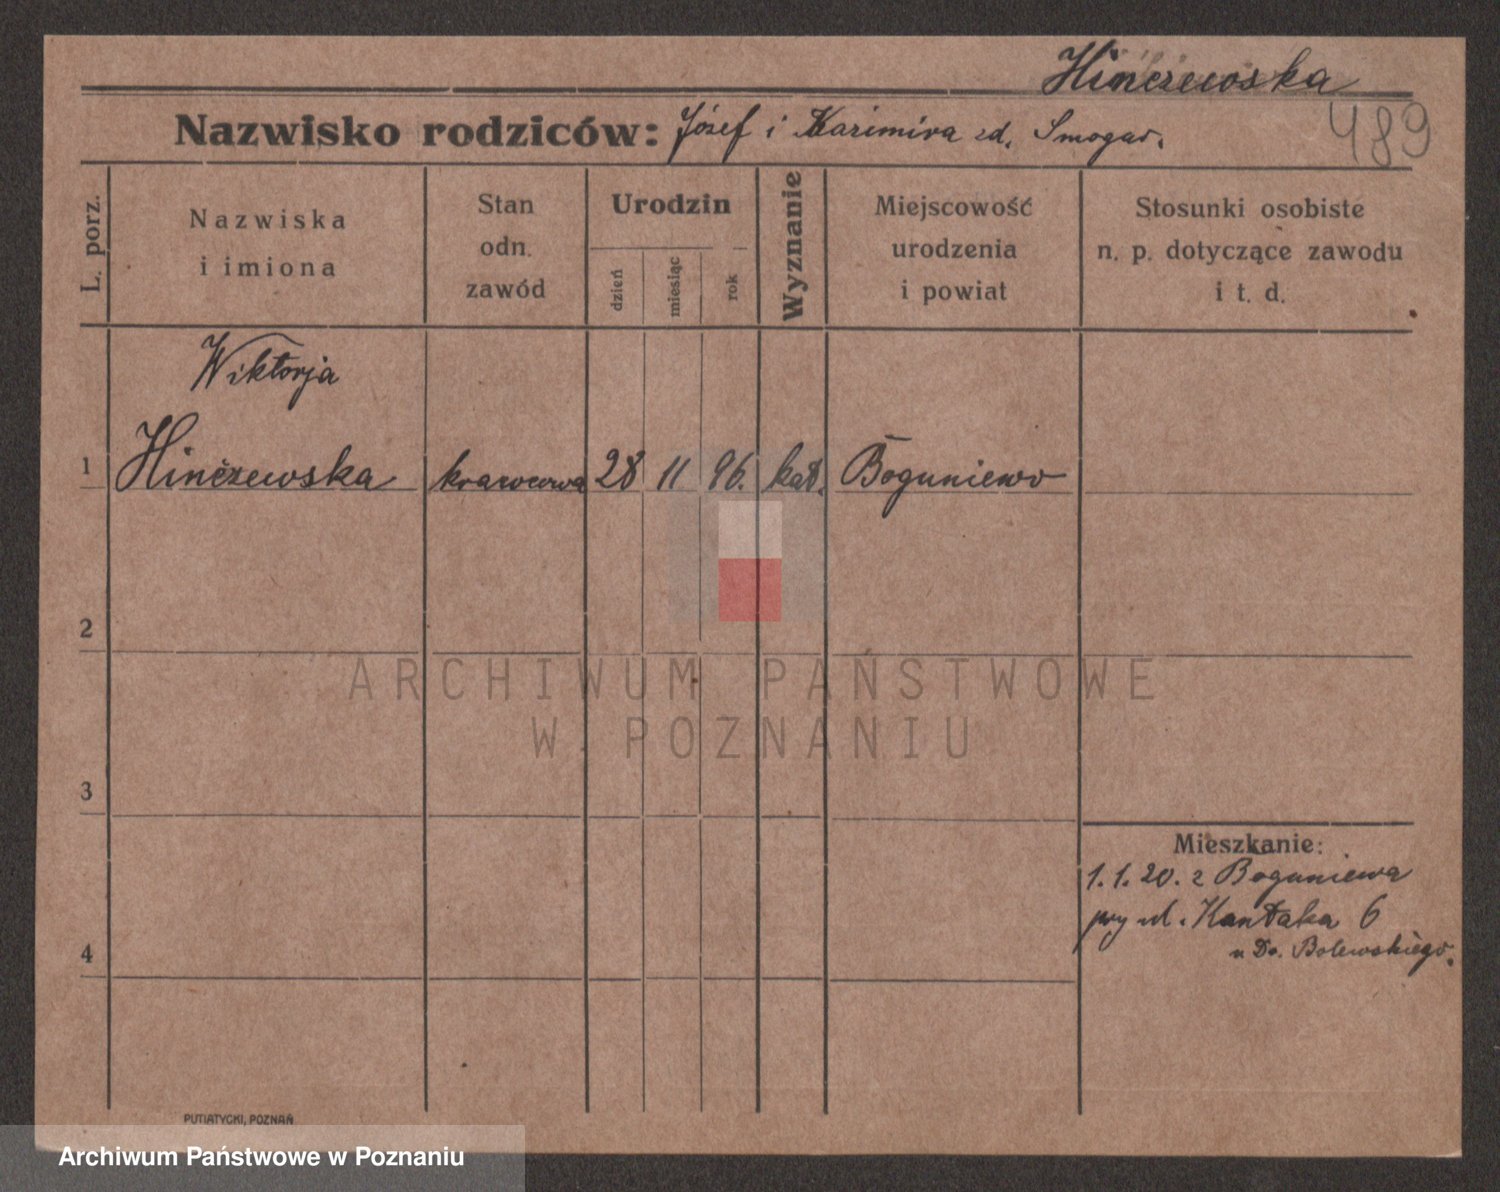 Hinczewska
Nazwisko rodziców: Józef i Kazimira zd. Smogur.
489
L. porz.
Nazwiska
i imiona
Stan
odn.
zawód
Urodzin
dzień
miesiąc
rok
Wyznanie
Miejscowość
urodzenia
i powiat
Stosunki osobiste
n. p. dotyczące zawodu
i t. d.
Wiktorja
1 Hinczewska krawcowa 28 11 96. kat. Boguniewo
2
ARCHIWUM PAŃSTWOWE
W POZNANIU
3
Mieszkanie:
1.1.20. z Boguniewa
przy ul. Kantaka 6
u Dr. Bolewskiego.
4
PUTIATYCKI, POZNAŃ
Archiwum Państwowe w Poznaniu